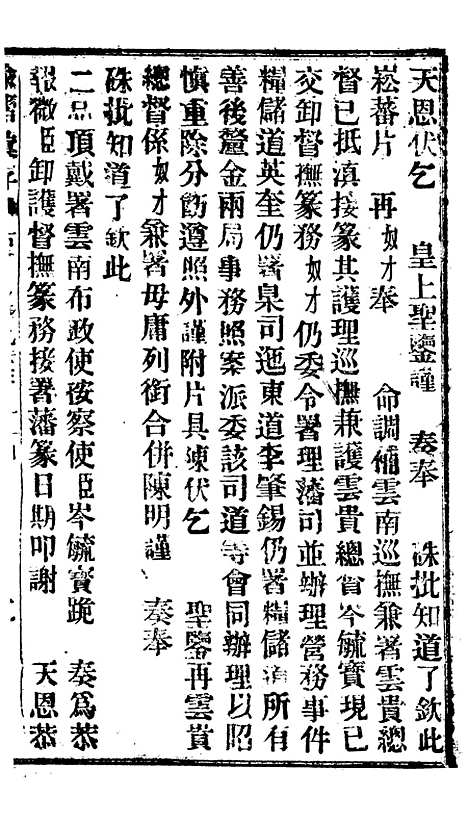 天恩伏乞 皇上聖鑒謹 奏奉 硃批知道了欽此
崧蕃片 再奴才奉 命調補雲南巡撫兼署雲貴總
督已抵滇接篆其護理巡撫兼護雲貴總督岑毓寶現已
交卸督撫篆務奴才仍委令署理藩司並辦理營務事件
糧儲道英奎仍署臬司迤東道李肇錫仍署糧儲道所有
善後釐金兩局事務照案派委該司道等會同辦理以昭
慎重除分飭遵照外謹附片具陳伏乞 聖鑒再雲貴
總督係奴才兼署毋庸列銜合併陳明謹 奏奉
硃批知道了欽此
二品頂戴署雲南布政使按察使臣岑毓寶跪 奏為恭
報微臣卸護督撫篆務接署藩篆日期叩謝 天恩恭